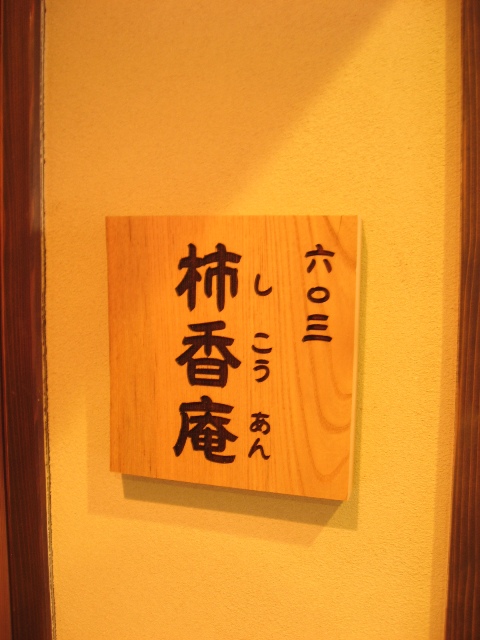 六〇三
しこうあん
柿香庵